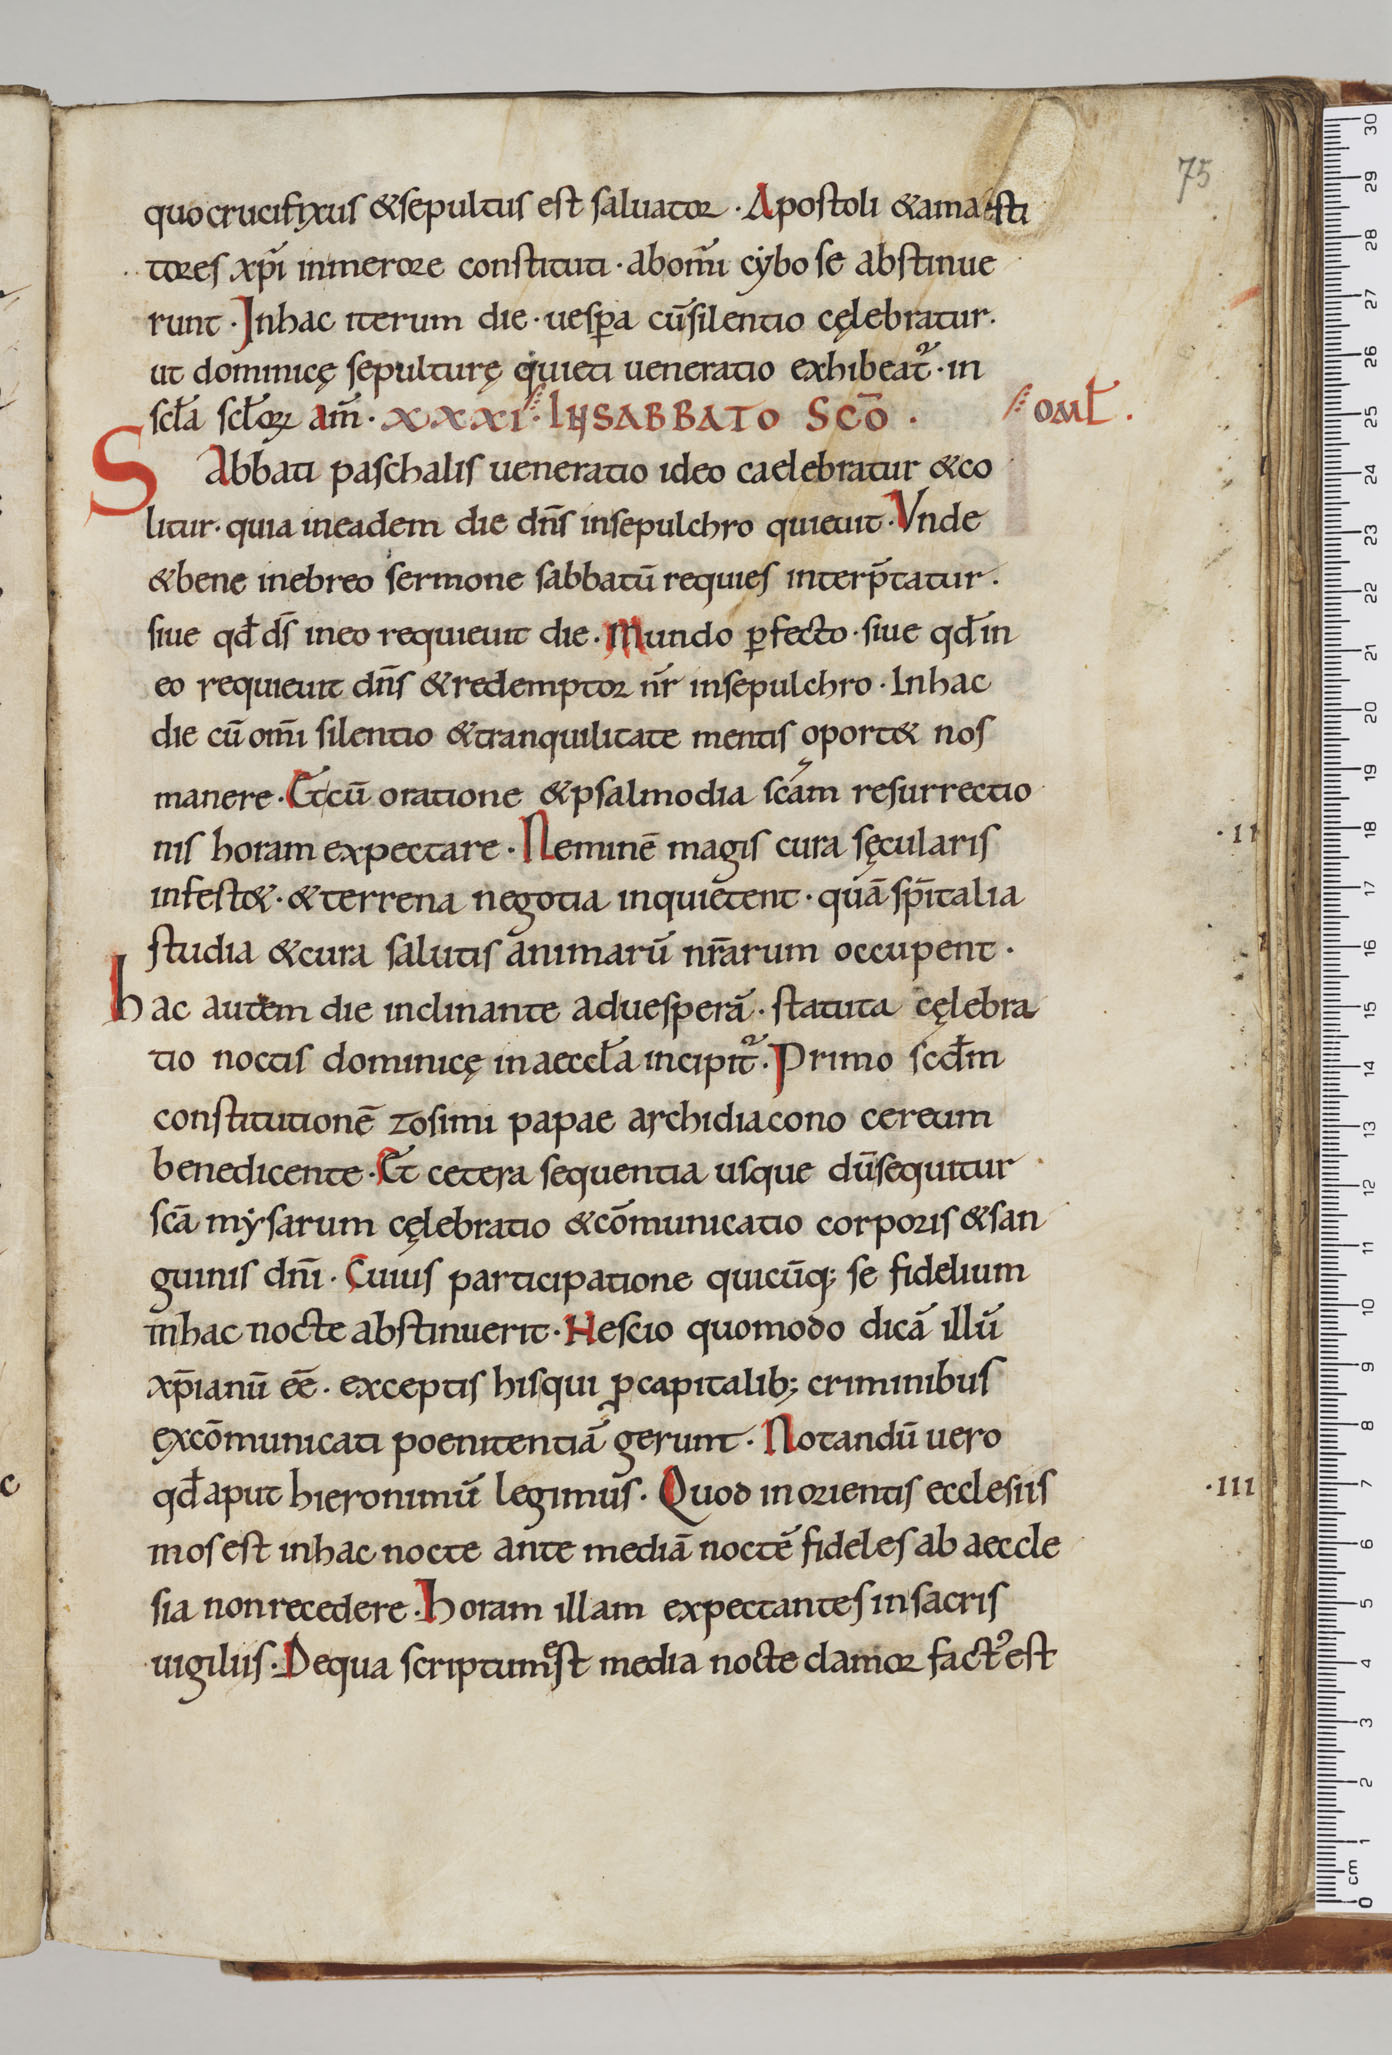 75
quo crucifixus & sepultus est saluator · Apostoli & ama esti
tores xp̄i in merore constituti · ab om̄i cẏbo se abstinue
runt · In hac iterum die · uesꝑa cū silentio cęlebratur ·
ut dominicę sepulturę quieti ueneratio exhibeat᷑ · in
scła scłoꝝ am̄ · XXXI · IN SABBATO SCŌ · omł ·
SAbbati paschalis ueneratio ideo caelebratur & co
litur · quia in eadem die dn̄s in sepulchro quieuit · Vnde
& bene in ebreo sermone sabbatū requies interp̄tatur ·
siue qđ ds̄ in eo requieuit die · Mundo ꝑfecto · siue qđ in
eo requieuit dn̄s & redemptor nr̄ in sepulchro · In hac
die cū om̄i silentio & tranquilitate mentis oport& nos
manere · Et cū oratione & psalmodia scām resurrectio
nis horam expectare · Neminē magis cura sęcularis
· II
infest& · & terrena negotia inquietent · quā sp̄italia
studia & cura salutis animarū nr̄arum occupent ·
hac autem die inclinante ad uesperā · statuta cęlebra
tio noctis dominicę in aeccła incipit᷑ · Primo scđm
constitutionē zosimi papae archidiacono cereum
benedicente · Et cetera sequentia usque dū sequitur
scā mẏsarum cęlebratio & cōmunicatio corporis & san
guinis dn̄i · Cuius participatione quicūq; se fidelium
in hac nocte abstinuerit · Nescio quomodo dicā illū
xp̄ianū eē · exceptis his qui ꝓ capitalib; criminibus
excōmunicati poenitentiā gerunt · Notandū uero
qđ aput hieronimū legimus · Quod in orientis ecclesiis
· III
mos est in hac nocte ante mediā noctē fideles ab aeccle
sia non recedere · horam illam expectantes in sacris
uigiliis · De qua scriptum est media nocte clamor fact᾿ est
30
29
28
27
26
25
24
23
22
21
20
19
18
17
16
15
14
13
12
11
10
9
8
7
6
5
4
3
2
1
cm
0